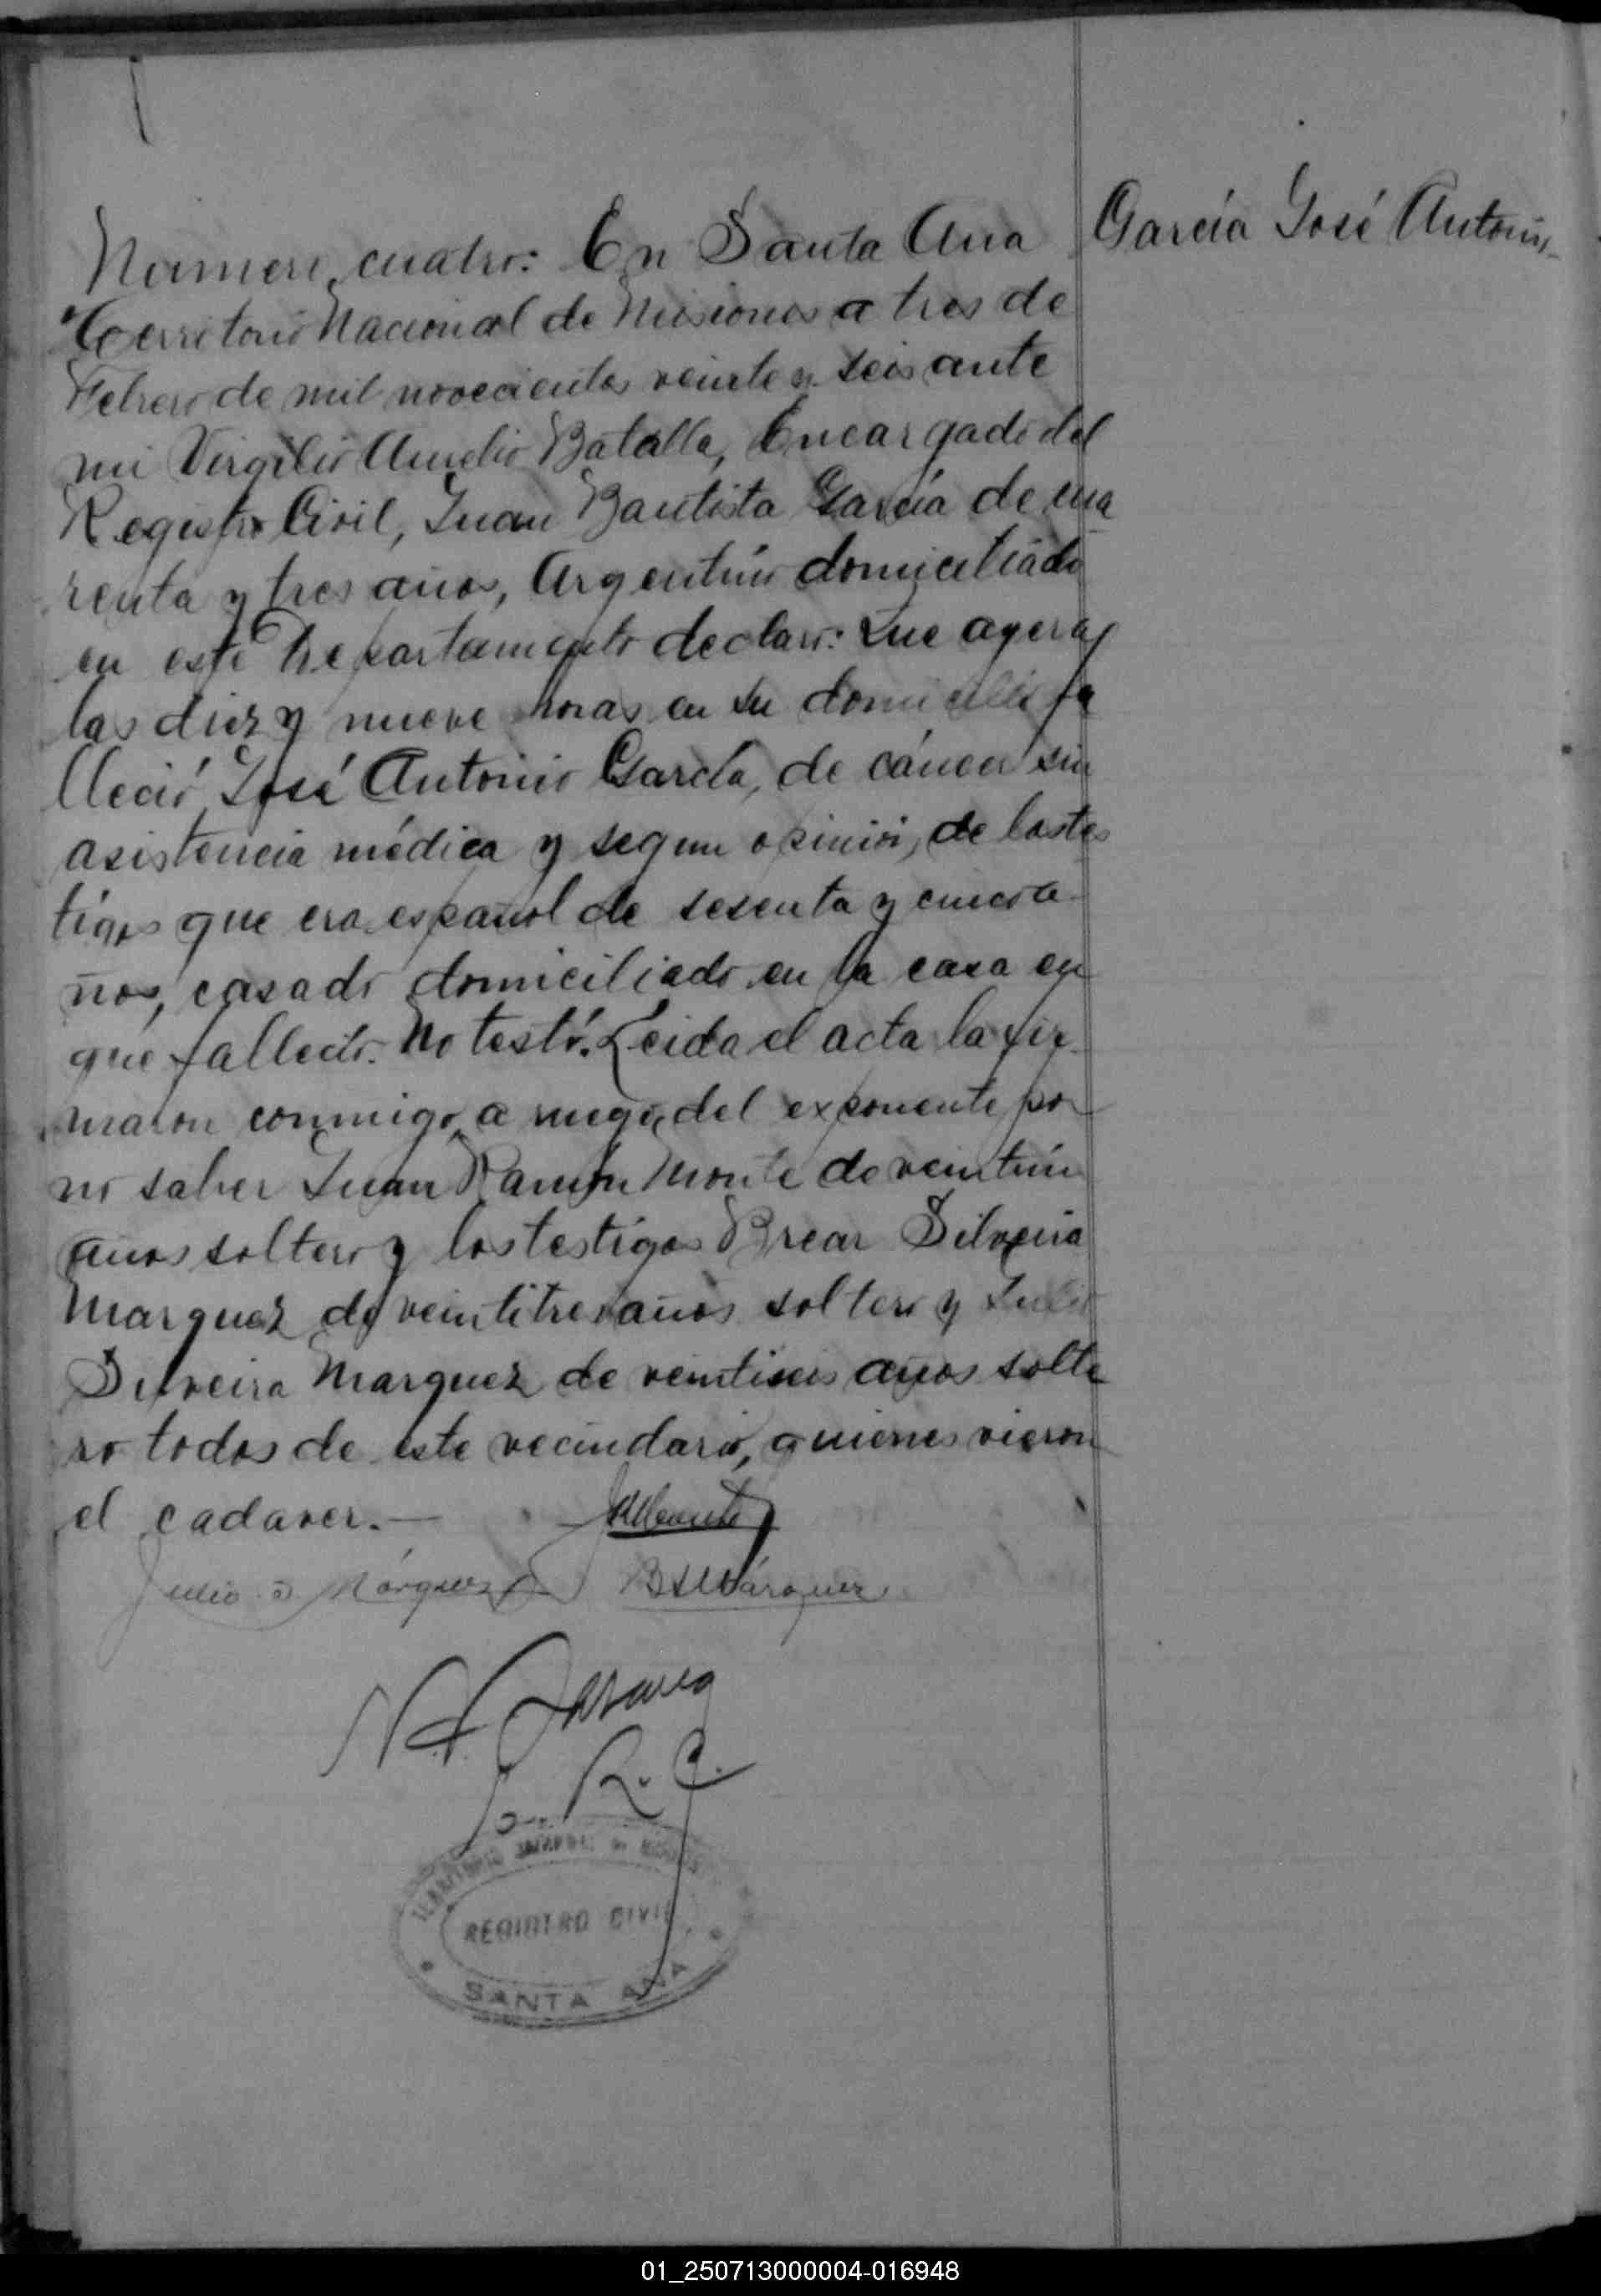 García José Antonio
Número cuatro: En Santa Ana
Territorio Nacional de Misiones a tres de
Febrero de mil novecientos veinte y seis ante
mi Virgilio Aurelio Batalla, Encargado del
Registro Civil, Juan Bautista García de cua
renta y tres años, Argentino domiciliado
en este Departamento declaró: Que ayer a
las diez y nueve horas en su domicilio fa
lleció José Antonio García, de cáncer sin
asistencia médica y segun opinión de los tes
tigos que era español de sesenta y cinco a
ños, casado domiciliado en la casa en
que falleció. No testó. Leida el acta la fir
maron conmigo, a ruego del exponente por
no saber Juan Ramón Monte de veintiún
años soltero y los testigos Brear Silveira
Marquez de veintitres años soltero y Julio
Silveira Marquez de veintiseis años solte
ro todos de este vecindario, quienes vieron
el cadaver.—
Julio S Márquez B S Márquez
R. C.
TERRITORIO NACIONAL DE MISIONES
REGISTRO CIVIL
SANTA ANA
01_250713000004-016948